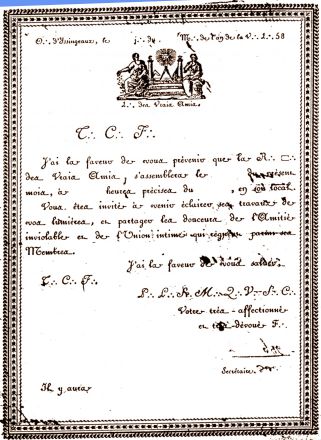 O∴ d'Issingeaux, le j∴ du M∴ de l'an de la V∴ L∴ 58
L∴ des Vrais Amis.
T∴ C∴ F∴
J'ai la faveur de vous prévenir que la R∴ □∴
des Vrais Amis, s'assemblera le présent
mois, à heures précises du , en son local.
Vous êtes invité à venir éclairer ses travaux de
vos lumières, et partager les douceurs de l'Amitié
inviolable et de l'Union intime qui règnent parmi ses
Membres.
J'ai la faveur de vous saluer,
T∴ C∴ F∴
P∴ L∴ N∴ M∴ Q∴ V∴ S∴ C∴
Votre très-affectionné
et très dévoué F∴
Secrétaire
Il y aura